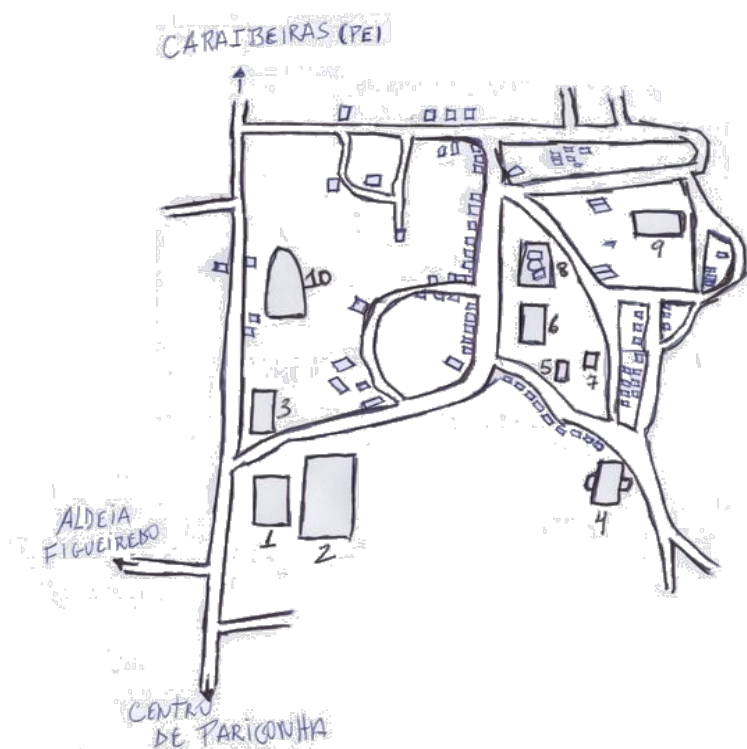 CARAIBEIRAS (PE)
10
9
8
6
5
7
3
4
1
2
ALDEIA
FIGUEIREDO
CENTRO
DE PARICONHA